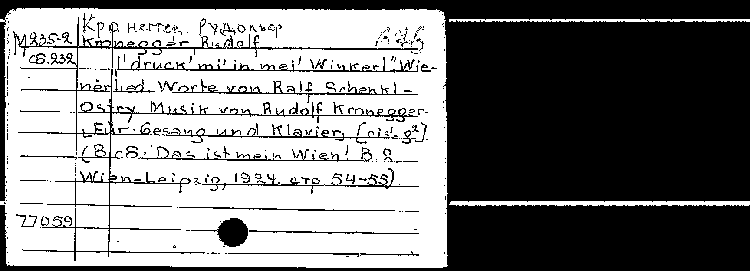 Кронеггер, Рудольф
М 235-2 Kronegger Rudolf
сб. 232 I' druck' mi' in mei' Winkerl". Wie-
nerlied. Worte von Ralf Schenkl-
Ostry Musik von Rudolf Kronegger
Für Gesang und Klavier, [cis'-g²]
(В сб: Das ist mein Wien! B. 2
Wien-Leipzig, 1924. стр 54-55)
77059